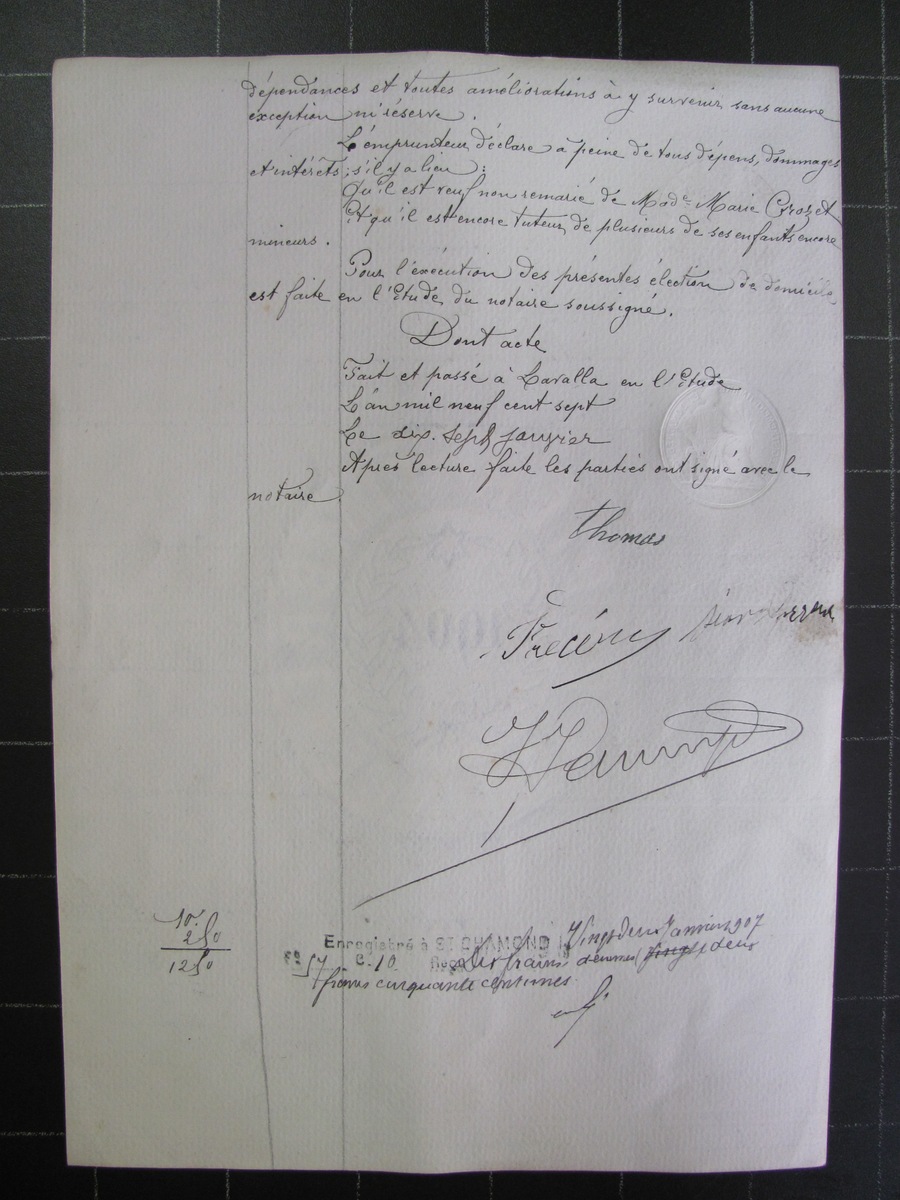 dépendances et toutes améliorations à y survenir sans aucune
exception ni réserve.
L'emprunteur déclare à peine de tous dépens, dommages
et intérêts, s'il y a lieu :
Qu'il est veuf non remarié de Mad^e Marie Crozet
Et qu'il est encore tuteur de plusieurs de ses enfants encore
mineurs.
Pour l'exécution des présentes élection de domicile
est faite en l'Etude du notaire soussigné.
Dont acte
Fait et passé à Lavalla en l'Etude
L'an mil neuf cent sept
Le dix-sept janvier
Après lecture faite les parties ont signé avec le
notaire.
Thomas
Frecon
10.
2 50
12 50
Enregistré à ST CHAMOND le Vingt deux Janvier 1907
F° 57 C. 10. Reçu dix francs décimes vingt deux
francs cinquante centimes